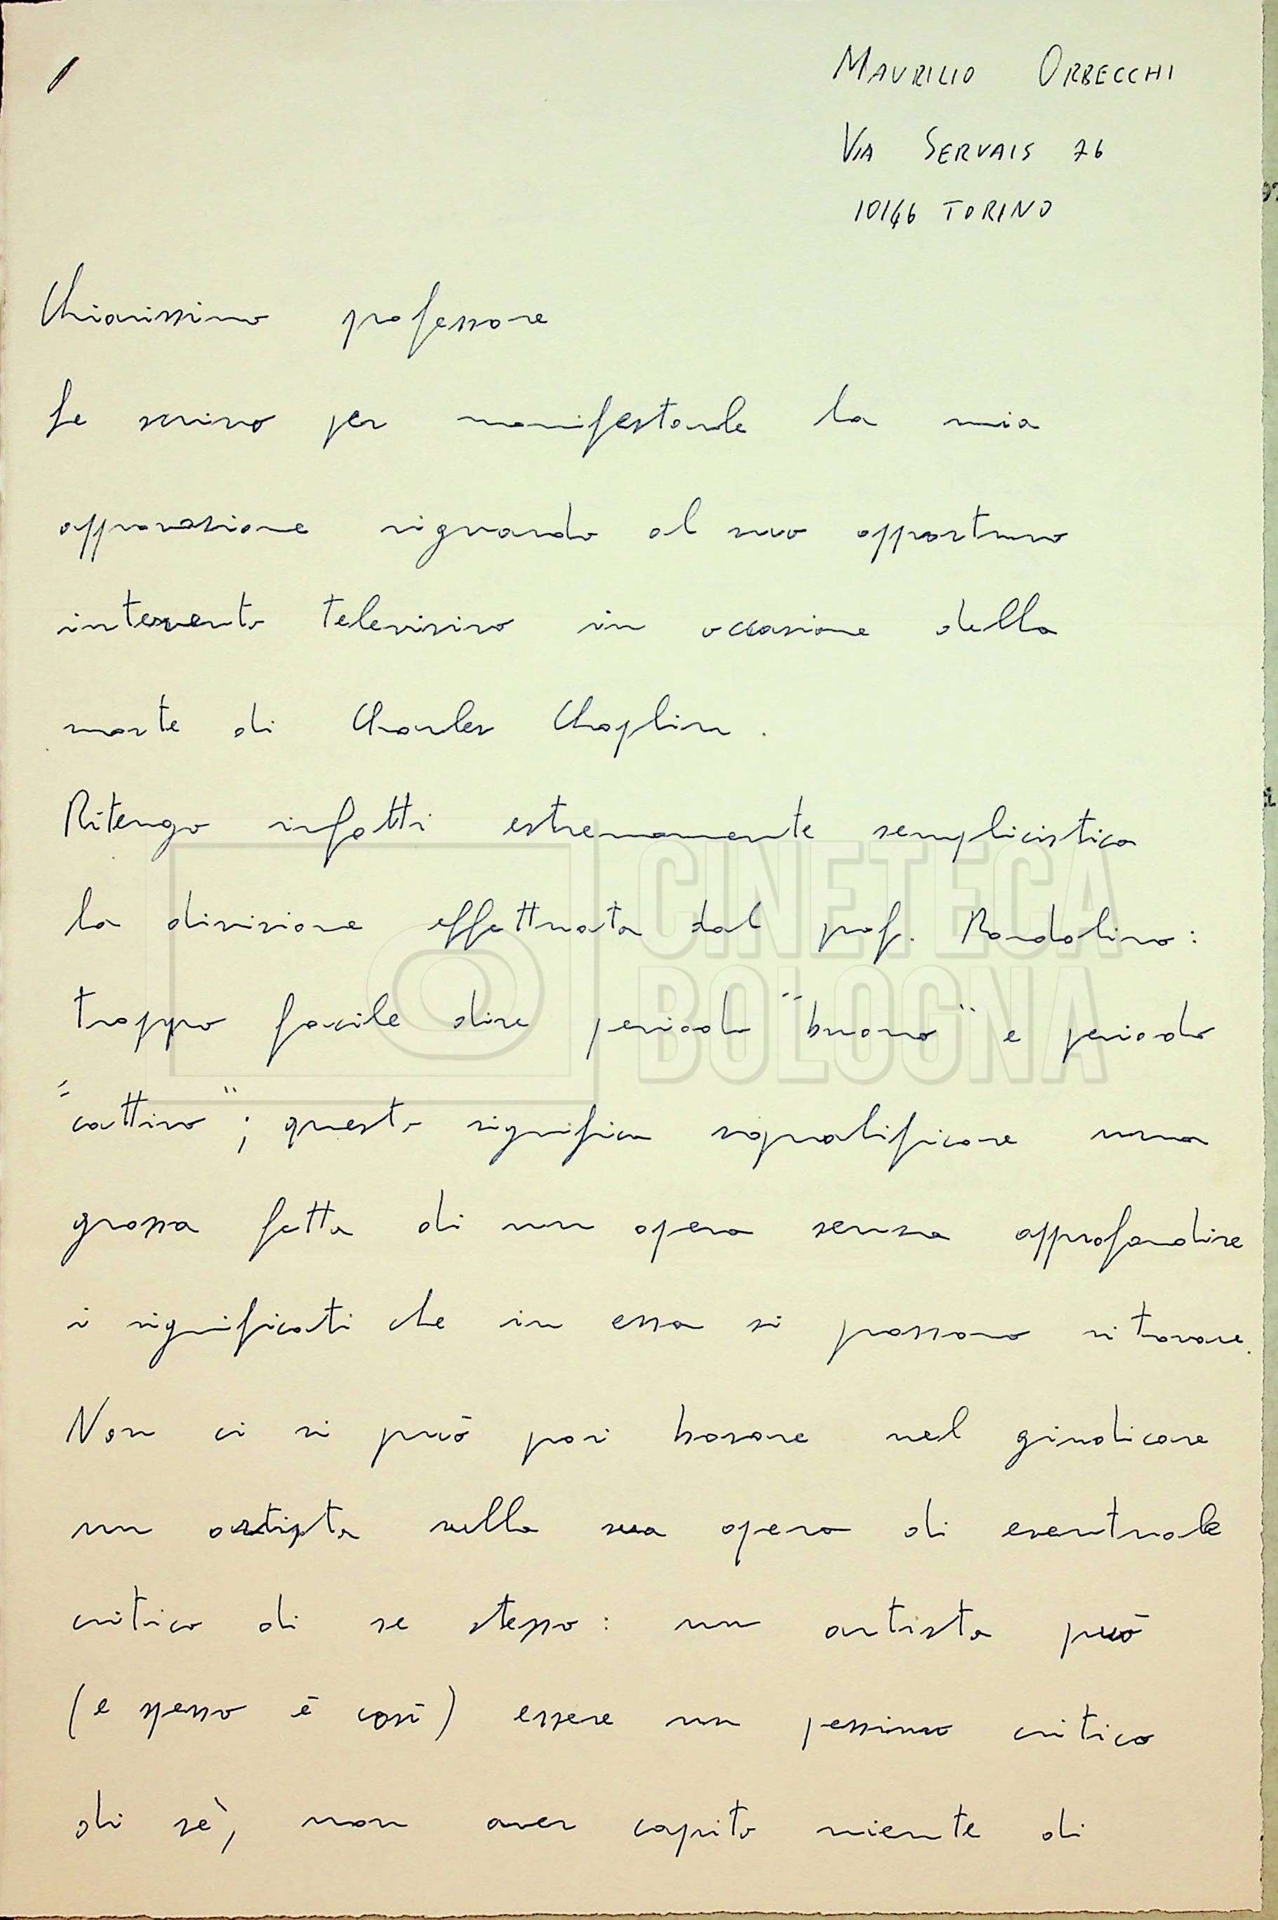 1
MAURILIO ORBECCHI
VIA SERVAIS 76
10146 TORINO
Chiarissimo professore
Le scrivo per manifestarle la mia
approvazione riguardo al suo opportuno
intervento televisivo in occasione della
morte di Charles Chaplin.
Ritengo infatti estremamente semplicistica
la divisione effettuata dal prof. Rondolino:
troppo facile dire periodo "buono" e periodo
"cattivo"; questo significa squalificare una
grossa fetta di un opera senza approfondire
i significati che in essa si possono ritovare.
Non ci si può poi basare nel giudicare
un artista sulla sua opera di eventuale
critico di se stesso: un artista può
(e spesso è così) essere un pessimo critico
di sè, non aver capito niente di
CINETECA
BOLOGNA